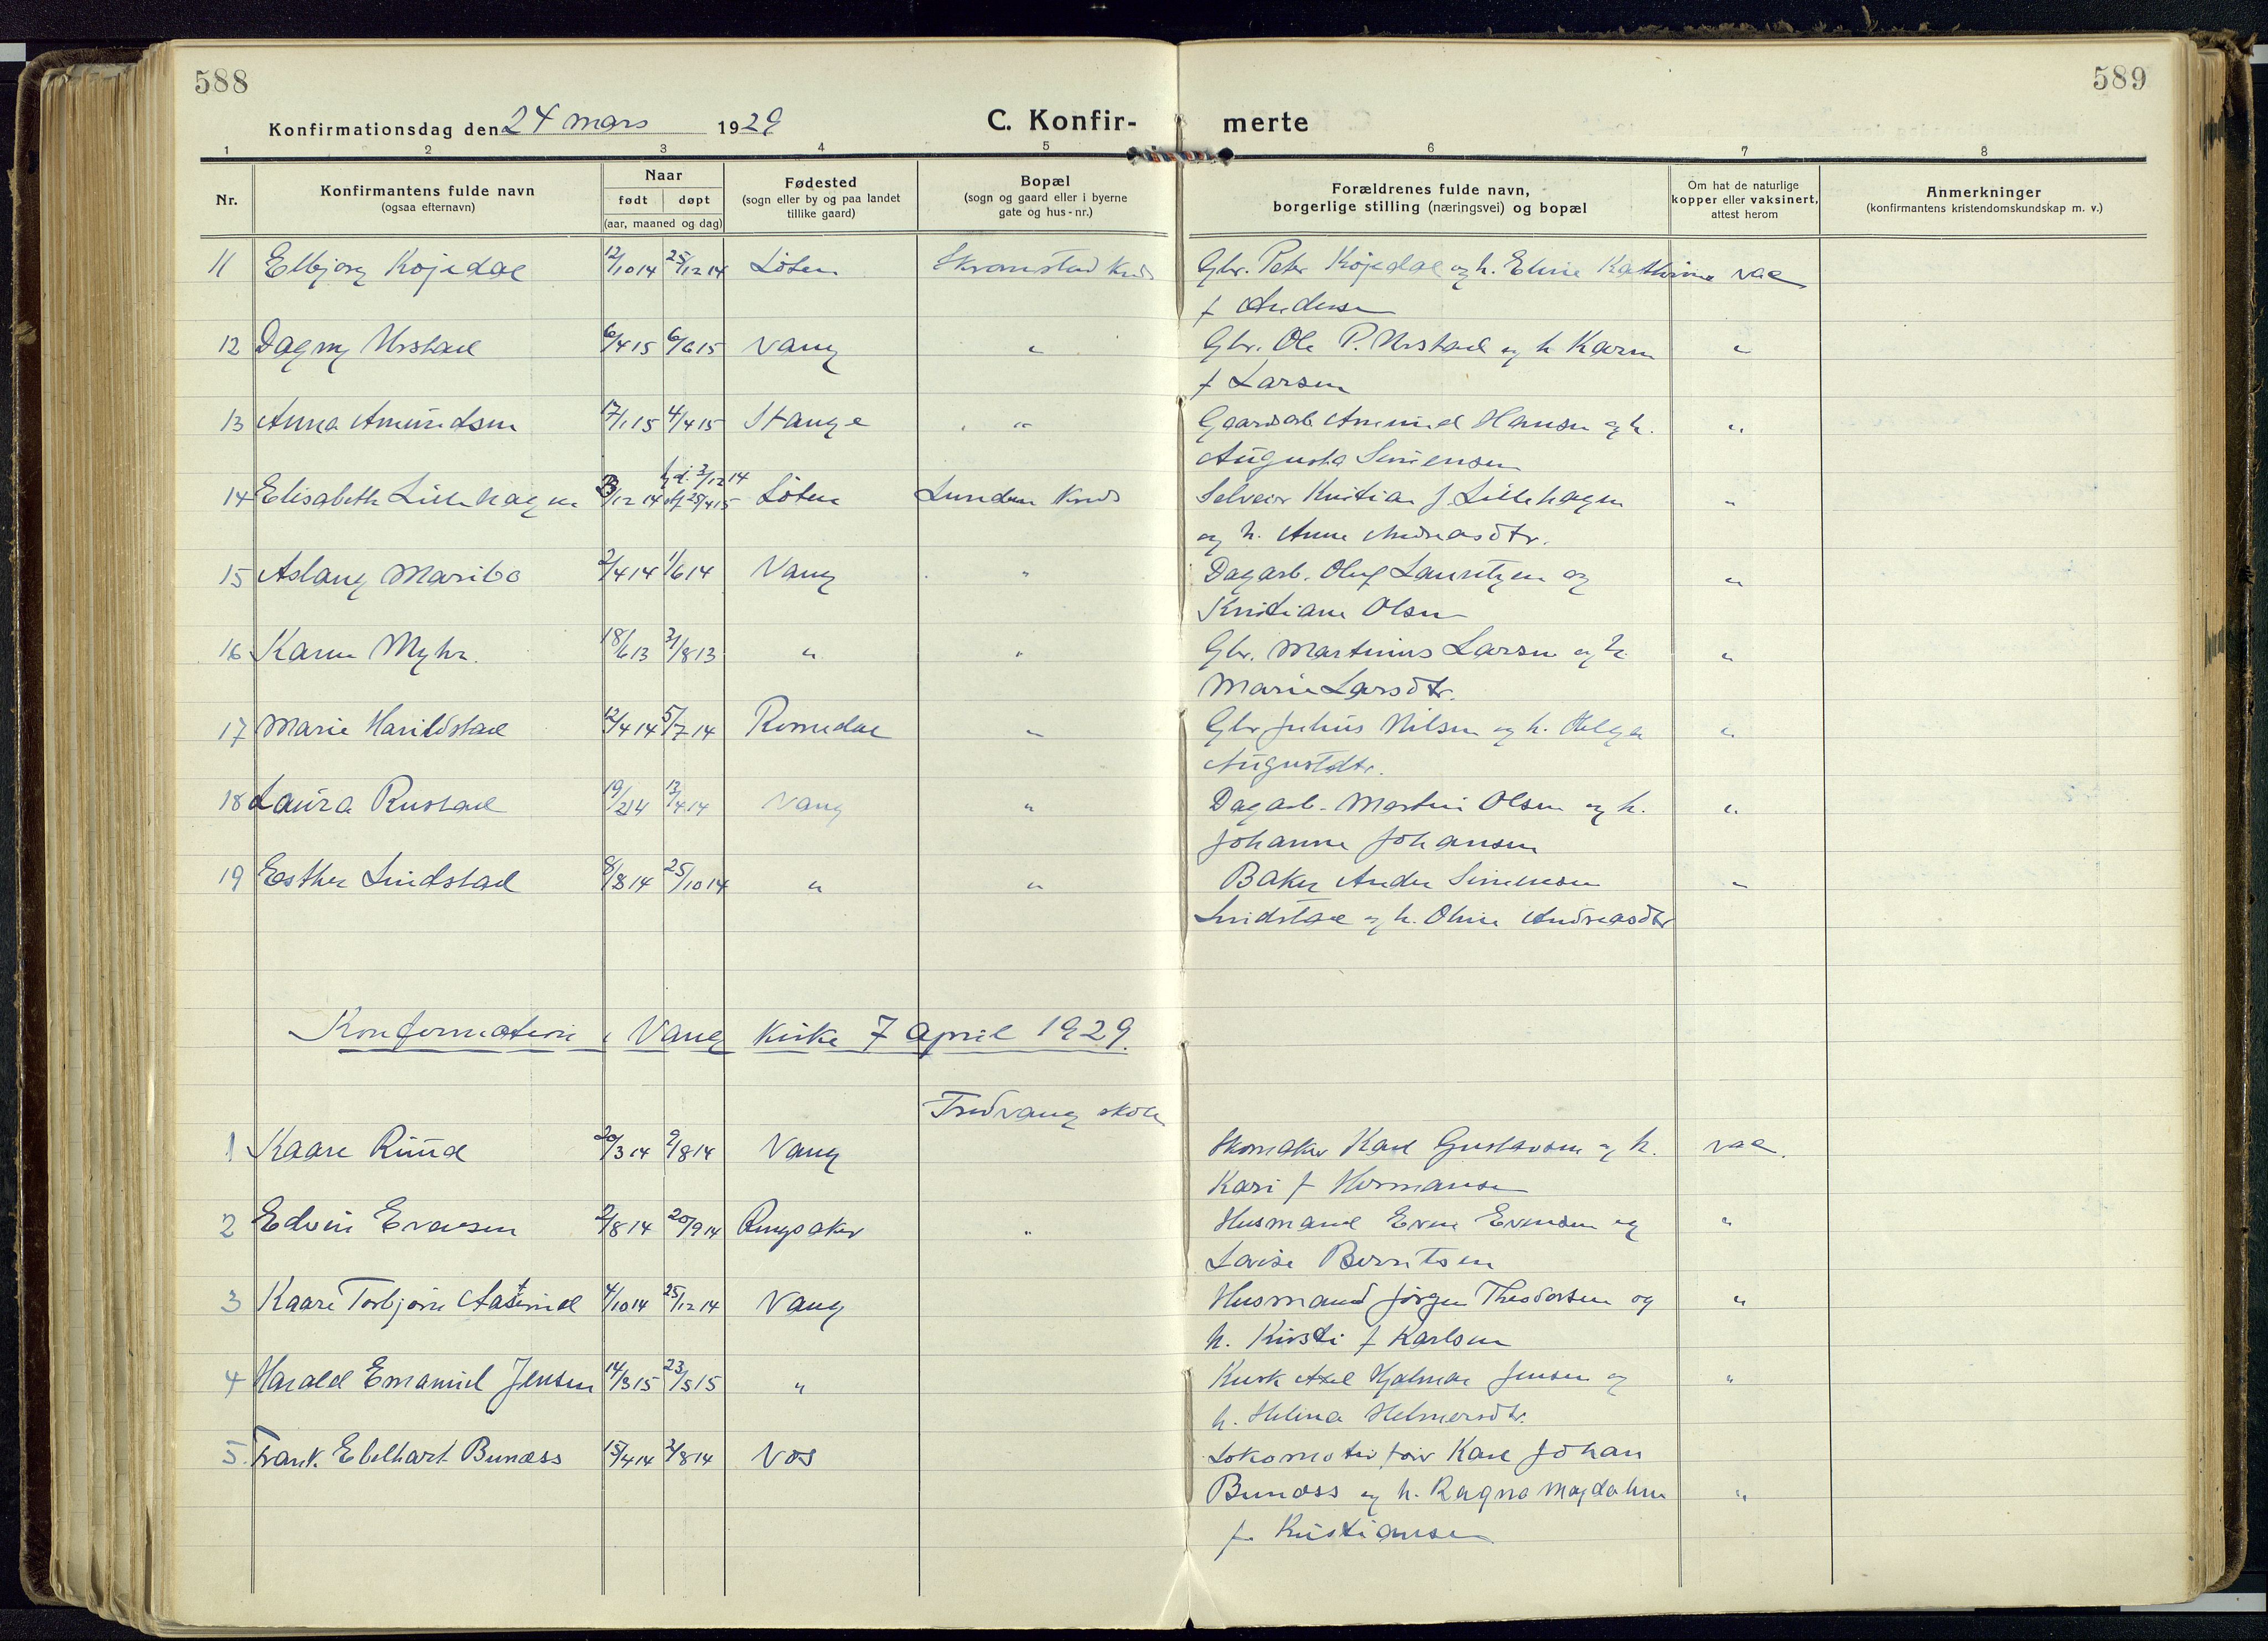 588
589
Konfirmationsdag den 24 mars 1929
C. Konfir-
merte
1 2 3 4 5 6 7 8
Nr.
Konfirmantens fulde navn
(ogsaa efternavn)
Naar
født døpt
(aar, maaned og dag)
Fødested
(sogn eller by og paa landet
tillike gaard)
Bopæl
(sogn og gaard eller i byerne
gate og hus-nr.)
Forældrenes fulde navn,
borgerlige stilling (næringsvei) og bopæl
Om hat de naturlige
kopper eller vaksinert,
attest herom
Anmerkninger
(konfirmantens kristendomskundskap m. v.)
11 Elbjørg Kojedal 12/10 14 25/12 14 Løten Gbr. Peter Kojedal og h. Eline Kathrine vac
f Andersen
12 Dagny Urstad 6/4 15 6/6 15 Vang " Gbr. Ole P. Urstad og h Karen "
f Larsen
13 Anna Amundsen 17/1 15 4/4 15 Stange " Gaardsarb. Amund Hansen og h. "
Augusta Simensen
hjd. 3/12 14
14 Elisabeth Lillehagen 3/12 14 25/4 15 Løten Lunden Selveier Kristian J. Lillehagen "
og h. Anne Andreasdtr.
15 Aslaug Maribo 2/4 14 1/6 14 Vang " Dagarb. Oluf Lauritzen og "
Kristiane Olsen
16 Karen Myhr. 18/6 13 3/8 13 " " Gbr. Martinius Larsen og h. "
Marie Larsdtr.
17 Marie Harildstad 12/4 14 5/7 14 Romedal " Gbr Julius Nilsen og h. Helga "
Augustdtr.
18 Laura Rustad 19/2 14 13/4 14 Vang " Dagarb. Martin Olsen og h. "
Johanne Johansen
19 Esther Lindstad 8/8 14 25/10 14 " " Baker Anders Simensen "
Lindstad og h. Oline Andreasdtr
Konfirmation i Vang Kirke 7 april 1929.
Fredvang skole
1 Kaare Ruud 20/3 14 9/8 14 Vang Skomaker Karl Gustavsen og h. vac.
Kari f Hermansen
2 Edvin Evensen 2/8 14 20/9 14 Ringsaker " Husmand Even Evensen og "
Lovise Berntsen
3 Kaare Torbjørn 4/10 14 25/12 14 Vang Husmand Jørgen Theodorsen og "
h. Kirsti f Karlsen
4 Harald Emanuel Jensen 14/3 15 23/5 15 " Kusk Axel Hjalmar Jensen og "
h. Helina Helmersdtr.
5. Frank Edelhart Bunæss 15/4 14 2/8 14 Vos Lokomotivfører Karl Johan
Bunæss og h. Ragna Magdalene "
f. Kristiansen